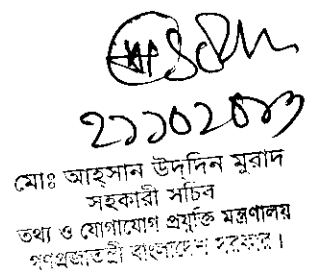 মোঃ আহ্সান উদদিন মুরাদ
সহকারী সচিব
তথ্য ও যোগাযোগ প্রযুক্তি মন্ত্রণালয়
গণপ্রজাতন্ত্রী বাংলাদেশ সরকার।